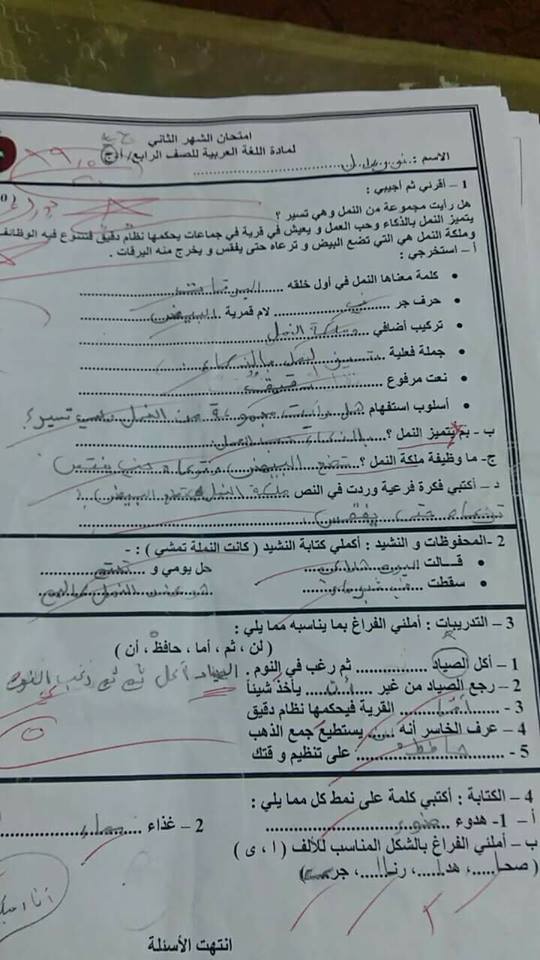 امتحان الشهر الثاني
لمادة اللغة العربية للصف الرابع/ ج
الاسم : ................
1 – أقرئي ثم أجيبي :
هل رأيت مجموعة من النمل وهي تسير ؟
يتميز النمل بالذكاء وحب العمل و يعيش في قرية في جماعات يحكمها نظام دقيق فتتنوع فيه الوظائف
وملكة النمل هي التي تضع البيض و ترعاه حتى يفقس و يخرج منه اليرقات .
أ – استخرجي :
• كلمة معناها النمل في أول خلقه ......... اليرقات
• حرف جر ... في ... لام قمرية ... البيض
• تركيب أضافي ... ملكة النمل
• جملة فعلية ... يتميز النمل بالذكاء
• نعت مرفوع ... دقيق
• أسلوب استفهام هل رأيت مجموعة من النمل وهي تسير ؟
ب - بم يتميز النمل ؟ ... بالذكاء وحب العمل
ج- ما وظيفة ملكة النمل ؟ تضع البيض وترعاه حتى يفقس
د – أكتبي فكرة فرعية وردت في النص ملكة النمل تضع البيض
ترعاه حتى يفقس
2 -المحفوظات و النشيد : أكملي كتابة النشيد ( كانت النملة تمشي ) : -
• قــالت ......... حل يومي و .........
• سقطت .........
3 – التدريبات : أملئي الفراغ بما يناسبه مما يلي :
( لن ، ثم ، أما ، حافظ ، أن )
1 – أكل الصياد ............ ثم رغب في النوم . الصياد أكل ثم رغب النوم
2 – رجع الصياد من غير ... أن ... يأخذ شيئاً
3 - ... أما ... القرية فيحكمها نظام دقيق
4 – عرف الخاسر أنه ...... يستطيع جمع الذهب
5 - ... حافظ ... على تنظيم و قتك
4 – الكتابة : أكتبي كلمة على نمط كل مما يلي :
أ – 1- هدوء ......... 2 – غذاء .........
ب – أملئي الفراغ بالشكل المناسب للألف ( ا ، ى )
( صحا......، هدا......، رنا......، جرى...... )
انتهت الأسئلة